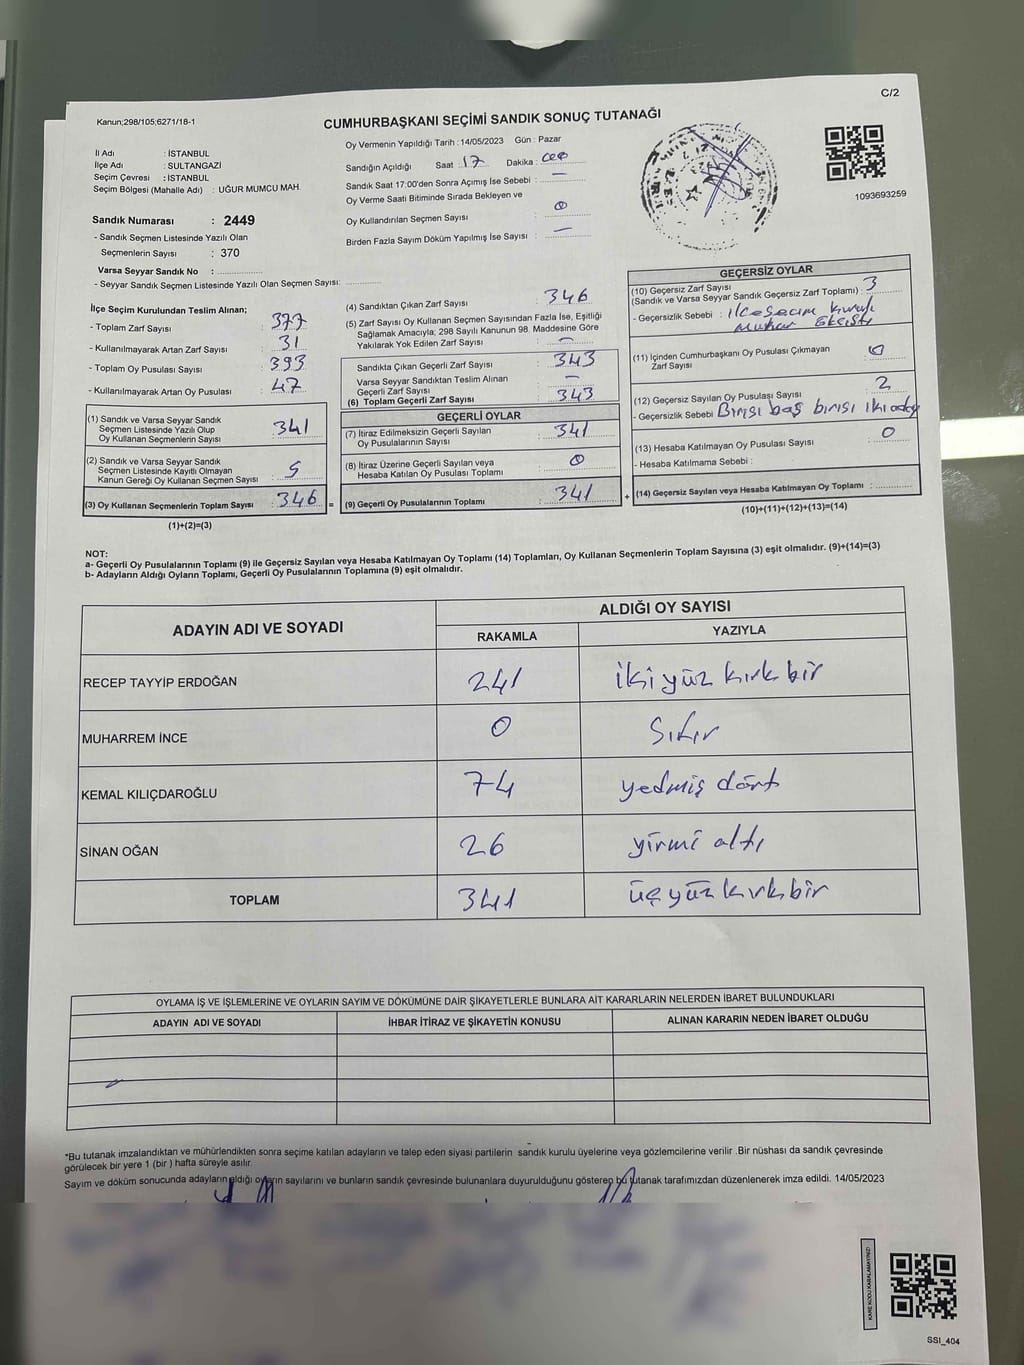 C/2
Kanun;298/105;6271/18-1
CUMHURBAŞKANI SEÇİMİ SANDIK SONUÇ TUTANAĞI
İl Adı : İSTANBUL
İlçe Adı : SULTANGAZİ
Seçim Çevresi : İSTANBUL
Seçim Bölgesi (Mahalle Adı) : UĞUR MUMCU MAH.
Sandık Numarası : 2449
- Sandık Seçmen Listesinde Yazılı Olan
Seçmenlerin Sayısı : 370
Varsa Seyyar Sandık No :
- Seyyar Sandık Seçmen Listesinde Yazılı Olan Seçmen Sayısı:
Oy Vermenin Yapıldığı Tarih :14/05/2023 Gün : Pazar
Sandığın Açıldığı Saat : 17 Dakika :
Sandık Saat 17:00'den Sonra Açımış İse Sebebi : —
Oy Verme Saati Bitiminde Sırada Bekleyen ve
Oy Kullandırılan Seçmen Sayısı : 0
Birden Fazla Sayım Döküm Yapılmış İse Sayısı : —
1093693259
İlçe Seçim Kurulundan Teslim Alınan;
- Toplam Zarf Sayısı : 377
- Kullanılmayarak Artan Zarf Sayısı : 31
- Toplam Oy Pusulası Sayısı : 393
- Kullanılmayarak Artan Oy Pusulası : 47
(1) Sandık ve Varsa Seyyar Sandık
Seçmen Listesinde Yazılı Olup
Oy Kullanan Seçmenlerin Sayısı : 341
(2) Sandık ve Varsa Seyyar Sandık
Seçmen Listesinde Kayıtlı Olmayan
Kanun Gereği Oy Kullanan Seçmen Sayısı : 5
(3) Oy Kullanan Seçmenlerin Toplam Sayısı : 346 =
(1)+(2)=(3)
(4) Sandıktan Çıkan Zarf Sayısı : 346
(5) Zarf Sayısı Oy Kullanan Seçmen Sayısından Fazla İse, Eşitliği
Sağlamak Amacıyla; 298 Sayılı Kanunun 98. Maddesine Göre
Yakılarak Yok Edilen Zarf Sayısı : —
Sandıkta Çıkan Geçerli Zarf Sayısı : 343
Varsa Seyyar Sandıktan Teslim Alınan
Geçerli Zarf Sayısı : —
(6) Toplam Geçerli Zarf Sayısı : 343
GEÇERLİ OYLAR
(7) İtiraz Edilmeksizin Geçerli Sayılan
Oy Pusulalarının Sayısı : 341
(8) İtiraz Üzerine Geçerli Sayılan veya
Hesaba Katılan Oy Pusulası Toplamı : 0
(9) Geçerli Oy Pusulalarının Toplamı : 341 +
GEÇERSİZ OYLAR
(10) Geçersiz Zarf Sayısı
(Sandık ve Varsa Seyyar Sandık Geçersiz Zarf Toplamı) : 3
- Geçersizlik Sebebi : ilçe seçim kurulu
Mühür Eksisti
(11) İçinden Cumhurbaşkanı Oy Pusulası Çıkmayan
Zarf Sayısı : 0
(12) Geçersiz Sayılan Oy Pusulası Sayısı : 2
- Geçersizlik Sebebi Birisi boş birisi iki aday
(13) Hesaba Katılmayan Oy Pusulası Sayısı : 0
- Hesaba Katılmama Sebebi :
(14) Geçersiz Sayılan veya Hesaba Katılmayan Oy Toplamı :
(10)+(11)+(12)+(13)=(14)
NOT:
a- Geçerli Oy Pusulalarının Toplamı (9) ile Geçersiz Sayılan veya Hesaba Katılmayan Oy Toplamı (14) Toplamları, Oy Kullanan Seçmenlerin Toplam Sayısına (3) eşit olmalıdır. (9)+(14)=(3)
b- Adayların Aldığı Oyların Toplamı, Geçerli Oy Pusulalarının Toplamına (9) eşit olmalıdır.
ADAYIN ADI VE SOYADI ALDIĞI OY SAYISI
RAKAMLA YAZIYLA
RECEP TAYYİP ERDOĞAN 241 iki yüz kırk bir
MUHARREM İNCE 0 Sıfır
KEMAL KILIÇDAROĞLU 74 yedmiş dört
SİNAN OĞAN 26 yirmi altı
TOPLAM 341 üç yüz kırk bir
OYLAMA İŞ VE İŞLEMLERİNE VE OYLARIN SAYIM VE DÖKÜMÜNE DAİR ŞİKAYETLERLE BUNLARA AİT KARARLARIN NELERDEN İBARET BULUNDUKLARI
ADAYIN ADI VE SOYADI İHBAR İTİRAZ VE ŞİKAYETİN KONUSU ALINAN KARARIN NEDEN İBARET OLDUĞU
*Bu tutanak imzalandıktan ve mühürlendikten sonra seçime katılan adayların ve talep eden siyasi partilerin sandık kurulu üyelerine veya gözlemcilerine verilir .Bir nüshası da sandık çevresinde
görülecek bir yere 1 (bir ) hafta süreyle asılır.
Sayım ve döküm sonucunda adayların aldığı oyların sayılarını ve bunların sandık çevresinde bulunanlara duyurulduğunu gösteren bu tutanak tarafımızdan düzenlenerek imza edildi. 14/05/2023
KARE KODU KARALAMAYINIZ!
SSI_404